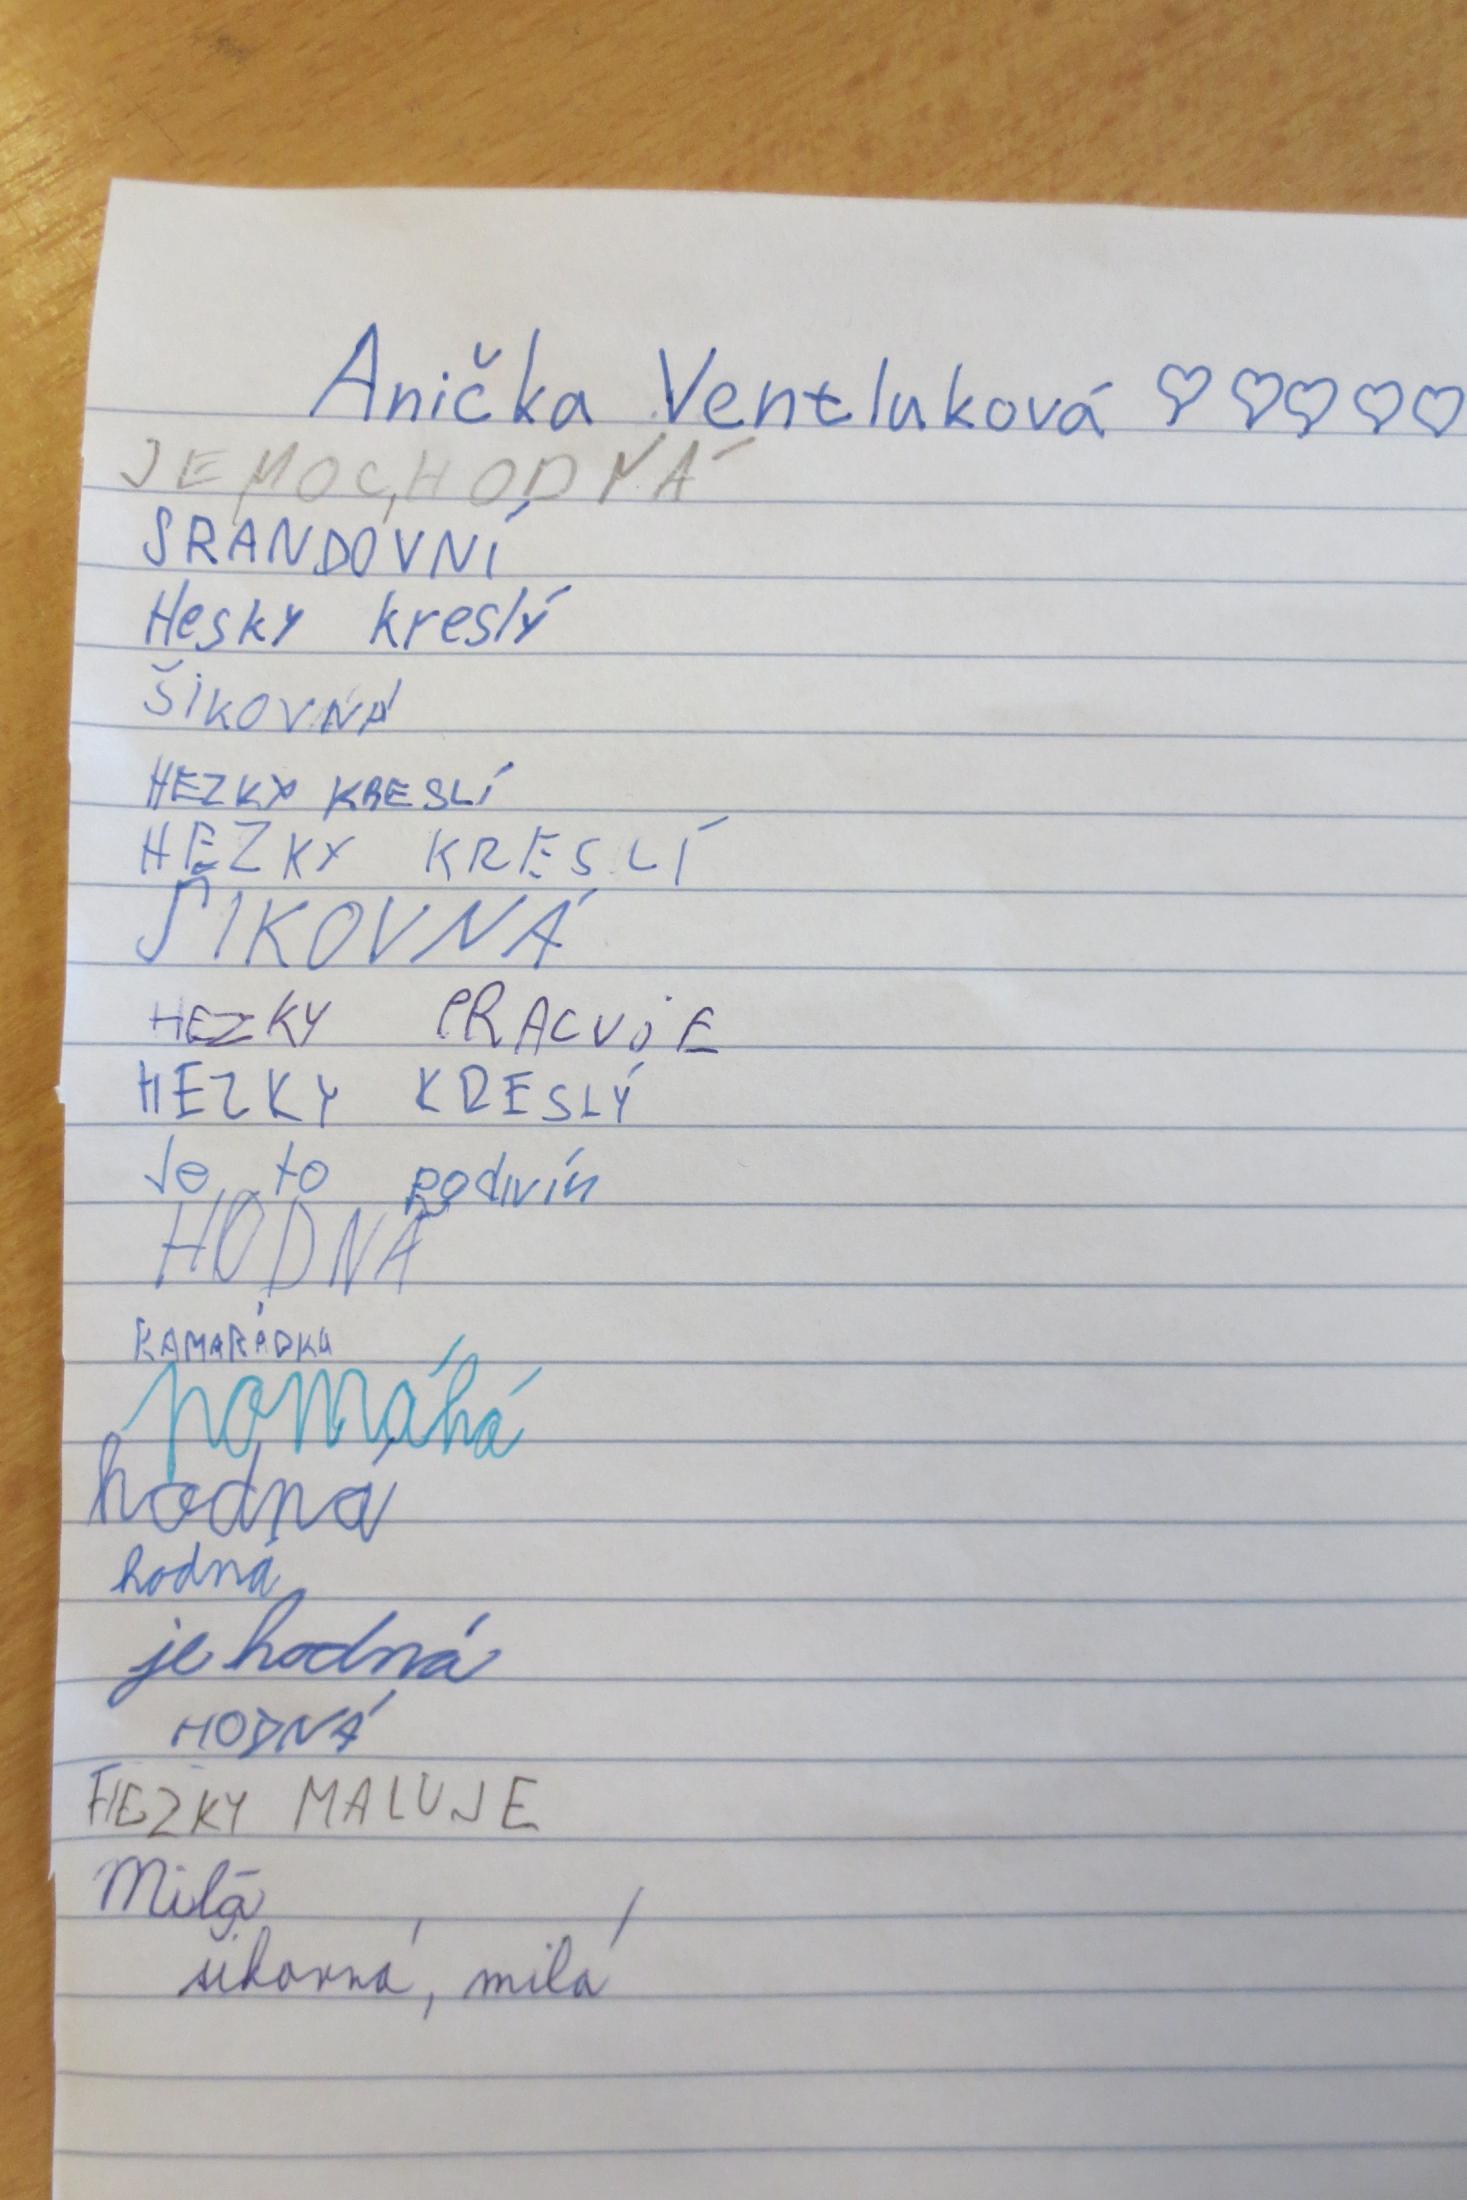 Anička Ventluková ♡♡♡♡♡
JE MOC HODNÁ
SRANDOVNÍ
Hesky kreslý
ŠIKOVNÁ
HEZKY KRESLÍ
HEZKY KRESLÍ
ŠIKOVNÁ
HEZKY PRACUJE
HEZKY KRESLÝ
Je to podivín
HODNÁ
KAMARÁDKA
pomáhá
hodná
hodná
je hodná
HODNÁ
HEZKY MALUJE
Milá
šikovná, milá